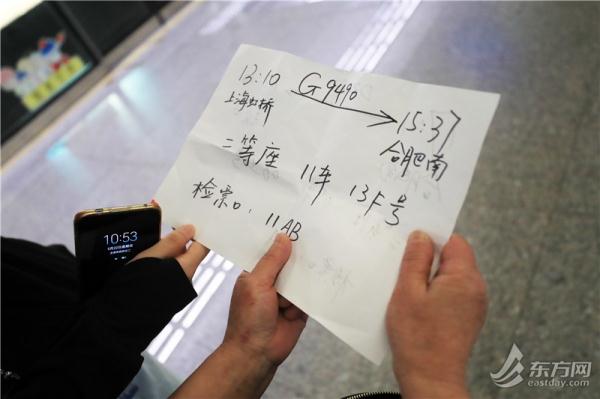 13:10 G9490 15:37
上海虹桥 合肥南
二等座 11车 13F号
检票口. 11AB
10:53
东方网
eastday.com